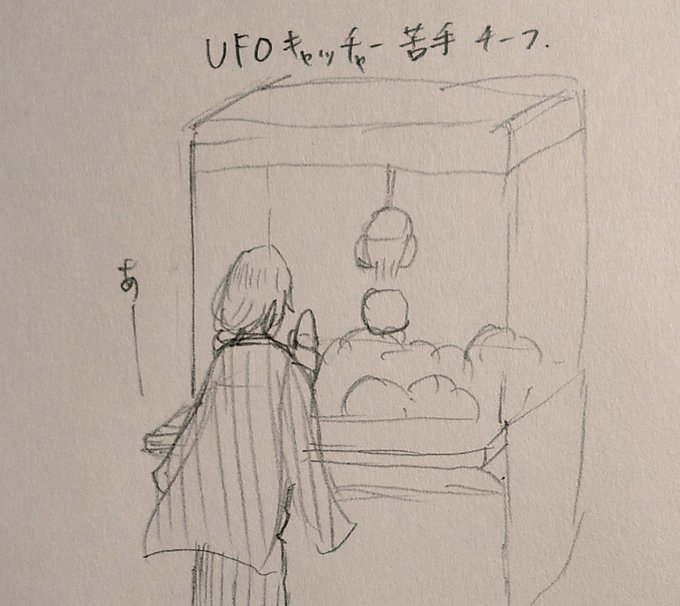 UFOキャッチャー 苦手 チーフ.
あー